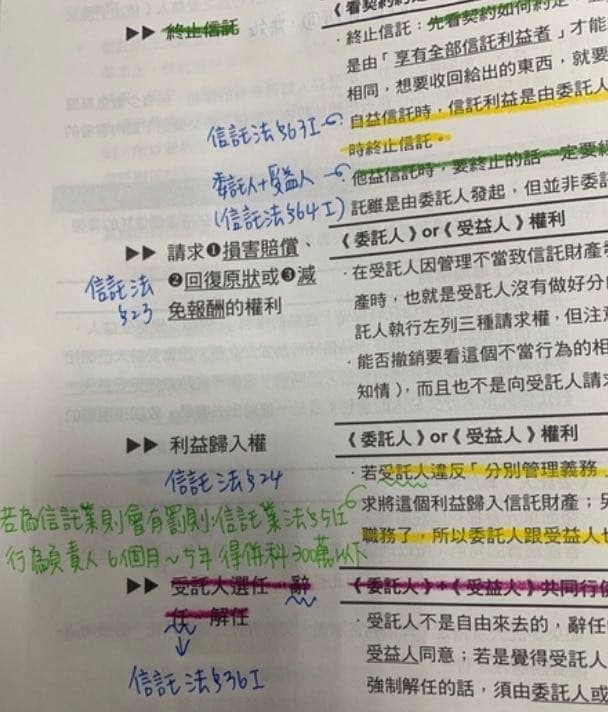 《看契約約定
▶▶ 終止信託
· 終止信託：先看契約如何約定
是由「享有全部信託利益者」才能
相同，想要收回給出的東西，就要
信託法§63I
自益信託時，信託利益是由委託人
時終止信託。
委託人+受益人
(信託法§64I)
· 他益信託時，要終止的話一定要經
託雖是由委託人發起，但並非委託
▶▶ 請求❶損害賠償、
❷回復原狀或❸減
免報酬的權利
信託法
§23
《委託人》or《受益人》權利
· 在受託人因管理不當致信託財產發
產時，也就是受託人沒有做好分
託人執行左列三種請求權，但注意
· 能否撤銷要看這個不當行為的相
知情），而且也不是向受託人請求
▶▶ 利益歸入權
信託法§24
《委託人》or《受益人》權利
· 若受託人違反「分別管理義務」
求將這個利益歸入信託財產；另
職務了，所以委託人跟受益人也
若為信託業則會有罰則:信託業法§51
行為負責人 6個月~5年 得併科 300萬以下
▶▶ 受託人選任、辭
任、解任
信託法§36I
《委託人》+《受益人》共同行使
· 受託人不是自由來去的，辭任
受益人同意；若是覺得受託人
強制解任的話，須由委託人或